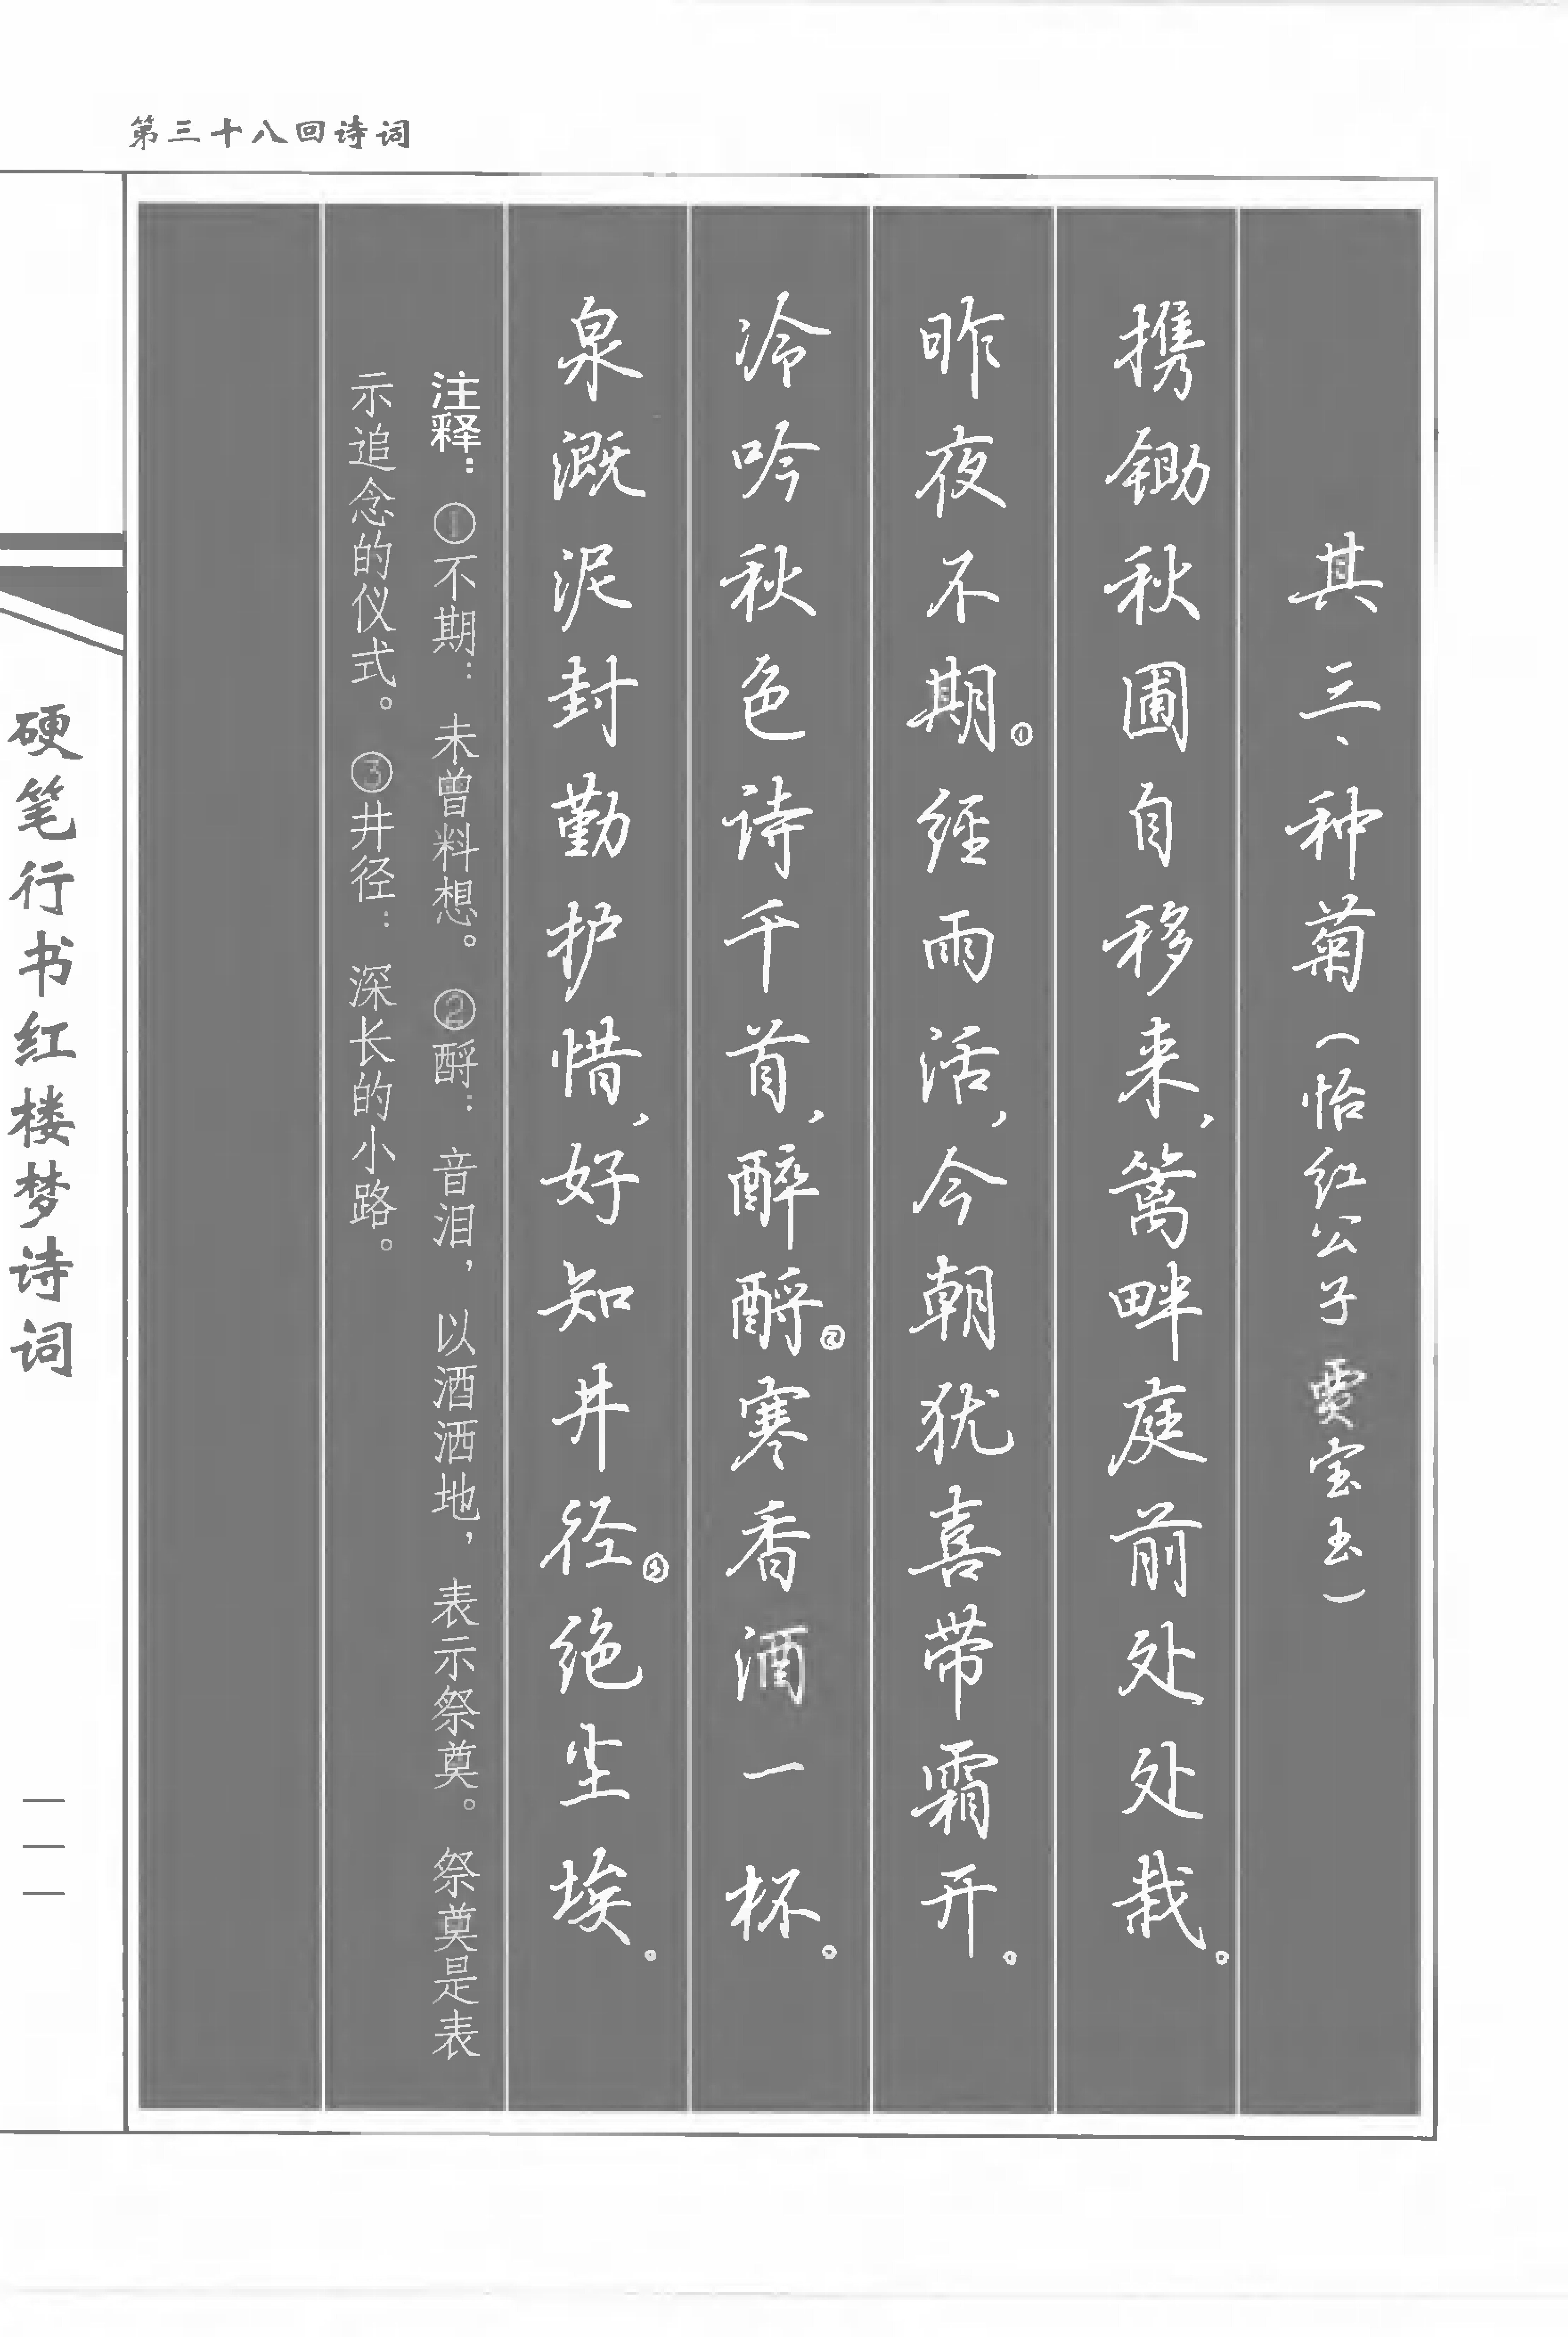 第三十八回诗词
其三、种菊(怡红公子 贾宝玉)
携锄秋圃自移来，篱畔庭前处处栽。
昨夜不期①经雨活，今朝犹喜带霜开。
冷吟秋色诗千首，醉酹②寒香酒一杯。
泉溉泥封勤护惜，好知井径③绝尘埃。
注释：①不期：未曾料想。②酹：音泪，以酒洒地，表示祭奠。祭奠是表
示追念的仪式。③井径：深长的小路。
硬笔行书红楼梦诗词
一一一